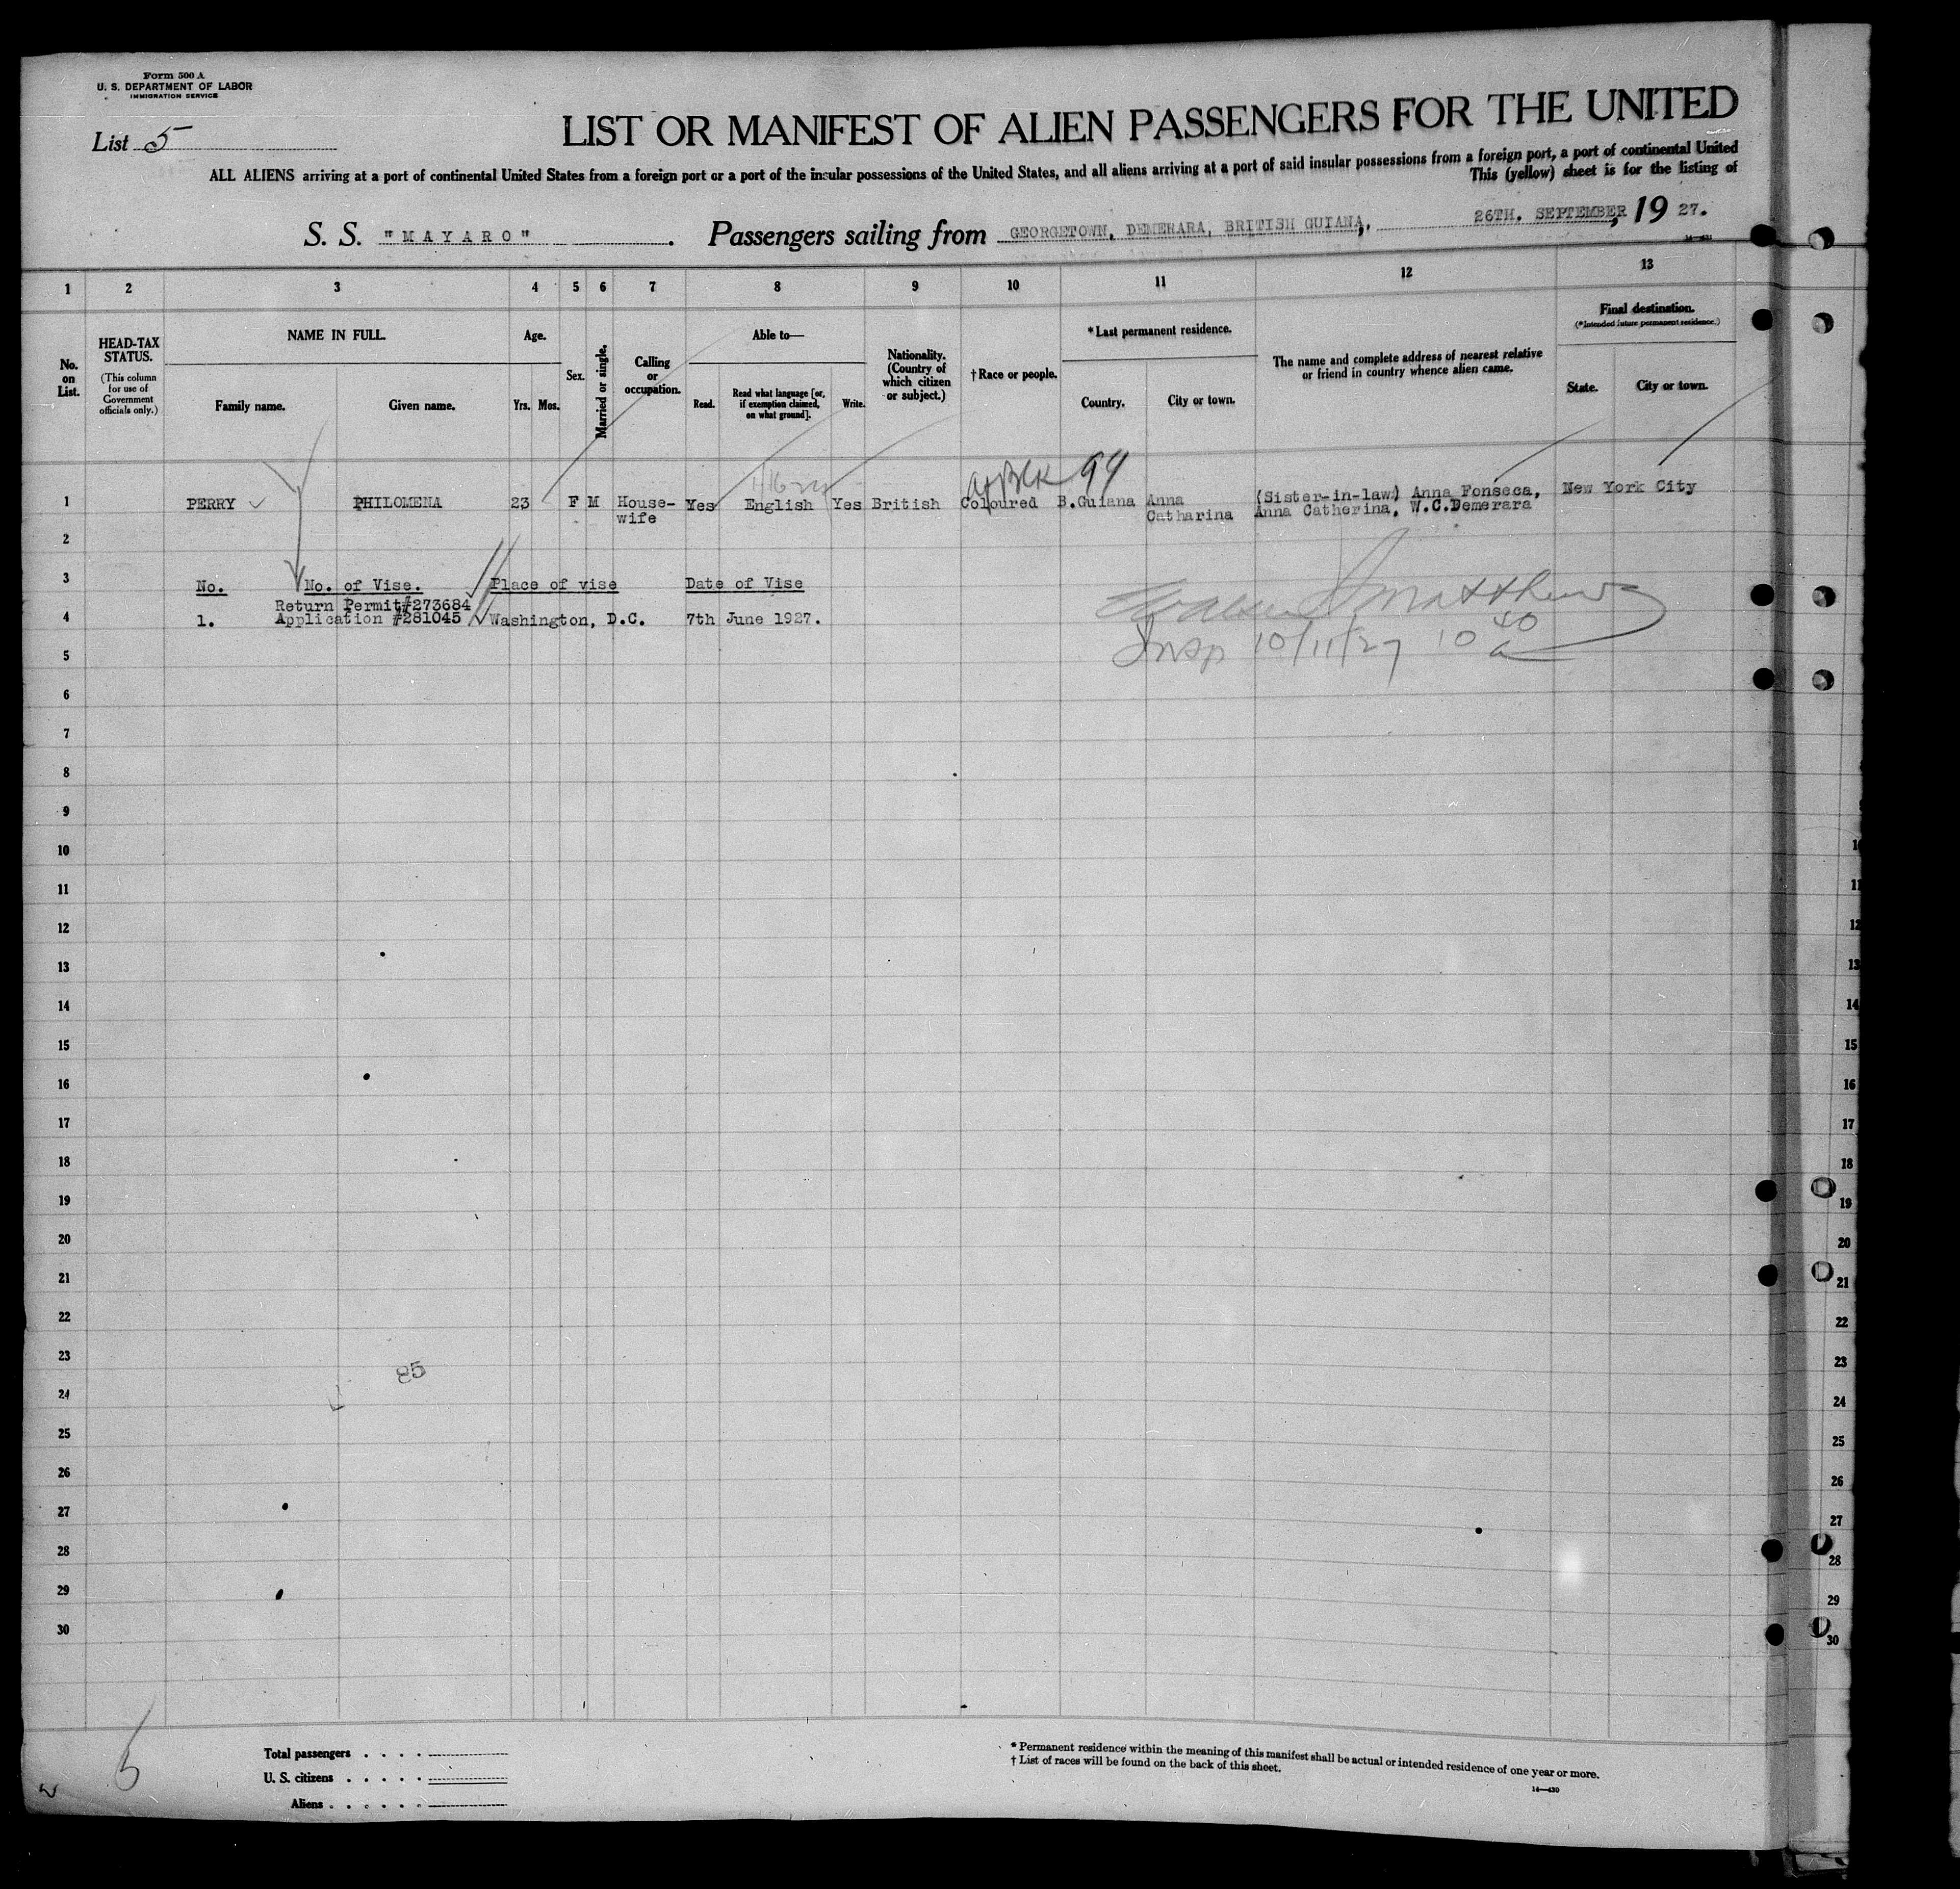 Form 500 A
U. S. DEPARTMENT OF LABOR
IMMIGRATION SERVICE
List 5
LIST OR MANIFEST OF ALIEN PASSENGERS FOR THE UNITED
ALL ALIENS arriving at a port of continental United States from a foreign port or a port of the insular possessions of the United States, and all aliens arriving at a port of said insular possessions from a foreign port, a port of continental United
This (yellow) sheet is for the listing of
S. S. "MAYARO" . Passengers sailing from GEORGETOWN, DEMERARA, BRITISH GUIANA, 26TH. SEPTEMBER, 19 27.
1 2 3 4 5 6 7 8 9 10 11 12 13
No. on List.
HEAD-TAX STATUS.
(This column for use of Government officials only.)
NAME IN FULL.
Family name. Given name.
Age.
Yrs. Mos.
Sex.
Married or single.
Calling or occupation.
Able to—
Read. Read what language [or, if exemption claimed, on what ground]. Write.
Nationality. (Country of which citizen or subject.)
†Race or people.
*Last permanent residence.
Country. City or town.
The name and complete address of nearest relative or friend in country whence alien came.
Final destination.
(*Intended future permanent residence.)
State. City or town.
99
1 PERRY PHILOMENA 23 F M House- Yes English Yes British Coloured B.Guiana Anna (Sister-in-law) Anna Fonseca, New York City
wife Catharina Anna Catherina, W.C.Demerara
2
3 No. No. of Vise. Place of vise Date of Vise
Return Permit #273684
4 1. Application #281045 Washington, D.C. 7th June 1927.
Matthews
Insp 10/11/27 10 40 a
5
6
7
8
9
10
11
12
13
14
15
16
17
18
19
20
21
22
23
85
24
25
26
27
28
29
30
10
11
12
13
14
15
16
17
18
19
20
21
22
23
24
25
26
27
28
29
30
5
Total passengers . . . .
U. S. citizens . . . . .
Aliens . . . . . .
* Permanent residence within the meaning of this manifest shall be actual or intended residence of one year or more.
† List of races will be found on the back of this sheet.
14—430